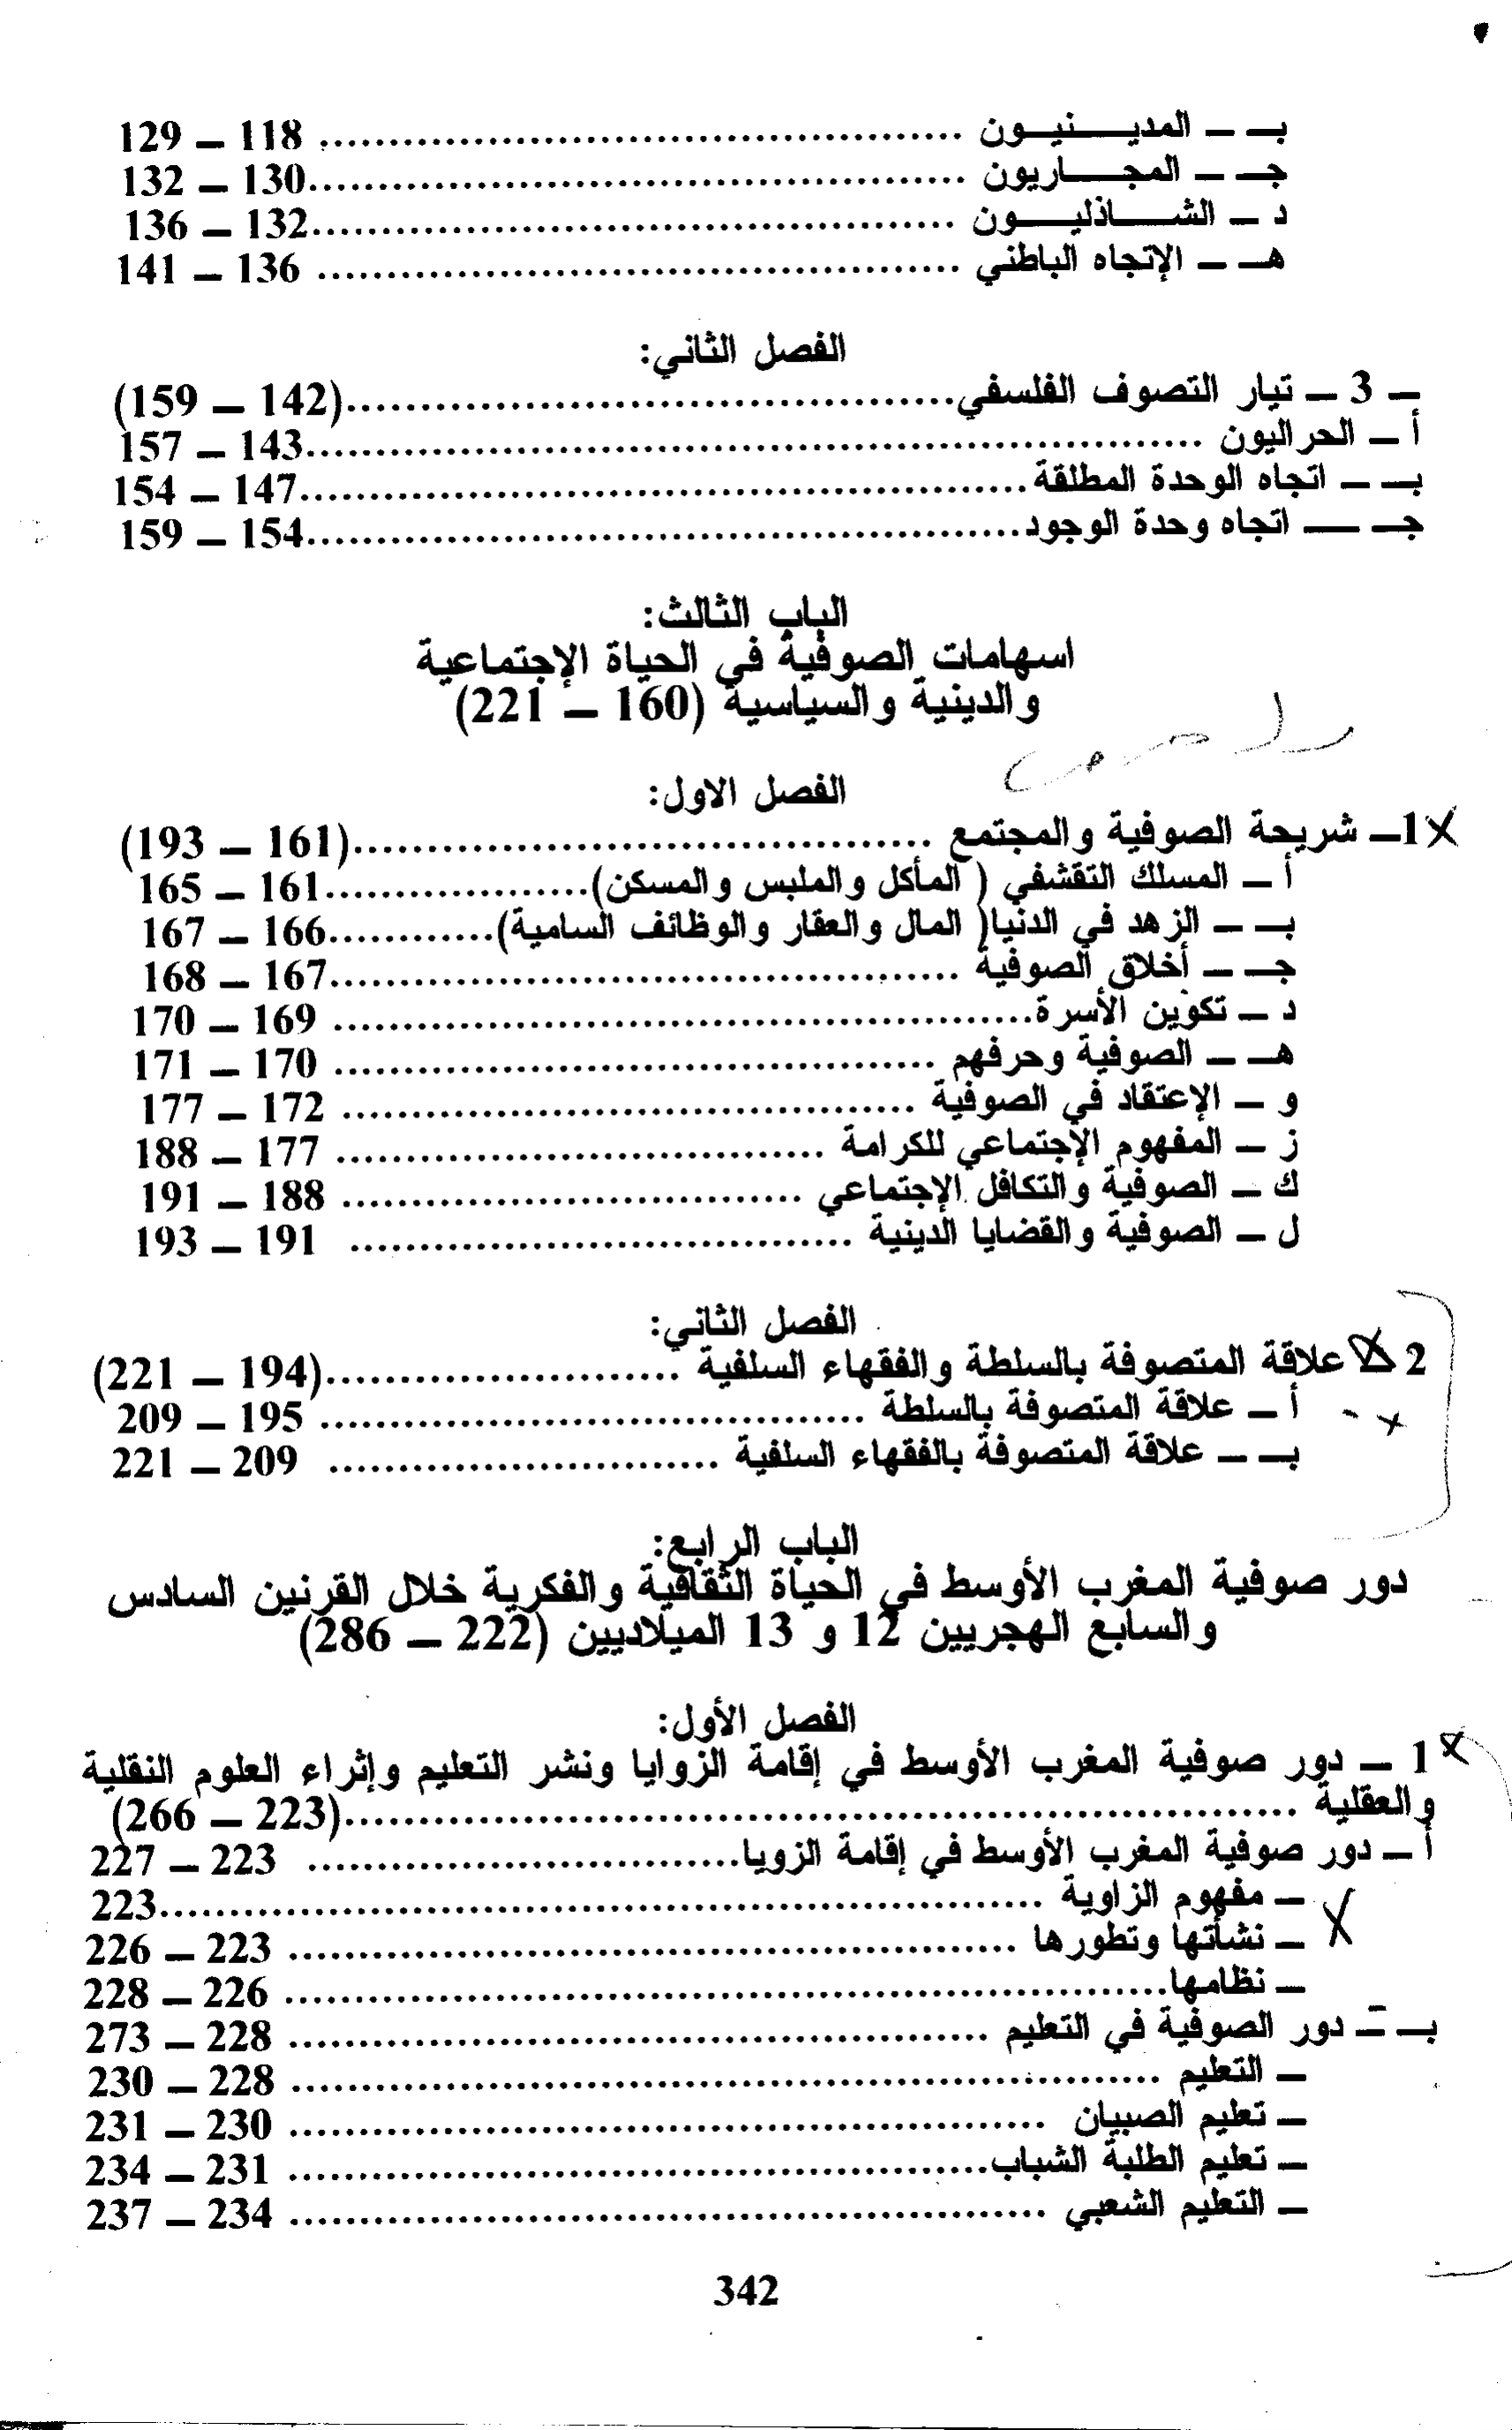 بـ ــ المديــنيــون ........ 118 ــ 129
جـ ــ المجــاريون ........ 130 ــ 132
د ــ الشــاذليــون ........ 132 ــ 136
هـ ــ الإتجاه الباطني ........ 136 ــ 141
الفصل الثاني:
ــ 3 ــ تيار التصوف الفلسفي ........ (142 ــ 159)
أ ــ الحراليون ........ 143 ــ 157
بـ ــ اتجاه الوحدة المطلقة ........ 147 ــ 154
جـ ــ اتجاه وحدة الوجود ........ 154 ــ 159
الباب الثالث:
اسهامات الصوفية في الحياة الإجتماعية
والدينية والسياسية (160 ــ 221)
الفصل الاول:
1ــ شريحة الصوفية والمجتمع ........ (161 ــ 193)
أ ــ المسلك التقشفي ( المأكل والملبس والمسكن) ........ 161 ــ 165
بـ ــ الزهد في الدنيا( المال والعقار والوظائف السامية) ........ 166 ــ 167
جـ ــ أخلاق الصوفية ........ 167 ــ 168
د ــ تكوين الأسرة ........ 169 ــ 170
هـ ــ الصوفية وحرفهم ........ 170 ــ 171
و ــ الإعتقاد في الصوفية ........ 172 ــ 177
ز ــ المفهوم الإجتماعي للكرامة ........ 177 ــ 188
ك ــ الصوفية والتكافل الإجتماعي ........ 188 ــ 191
ل ــ الصوفية والقضايا الدينية ........ 191 ــ 193
الفصل الثاني:
2 علاقة المتصوفة بالسلطة والفقهاء السلفية ........ (194 ــ 221)
أ ــ علاقة المتصوفة بالسلطة ........ 195 ــ 209
بـ ــ علاقة المتصوفة بالفقهاء السلفية ........ 209 ــ 221
الباب الرابع:
دور صوفية المغرب الأوسط في الحياة الثقافية والفكرية خلال القرنين السادس
والسابع الهجريين 12 و 13 الميلاديين (222 ــ 286)
الفصل الأول:
1 ــ دور صوفية المغرب الأوسط في إقامة الزوايا ونشر التعليم وإثراء العلوم النقلية
والعقلية ........ (223 ــ 266)
أ ــ دور صوفية المغرب الأوسط في إقامة الزويا ........ 223 ــ 227
ــ مفهوم الزاوية ........ 223
ــ نشأتها وتطورها ........ 223 ــ 226
ــ نظامها ........ 226 ــ 228
بـ ــ دور الصوفية في التعليم ........ 228 ــ 273
ــ التعليم ........ 228 ــ 230
ــ تعليم الصبيان ........ 230 ــ 231
ــ تعليم الطلبة الشباب ........ 231 ــ 234
ــ التعليم الشعبي ........ 234 ــ 237
342